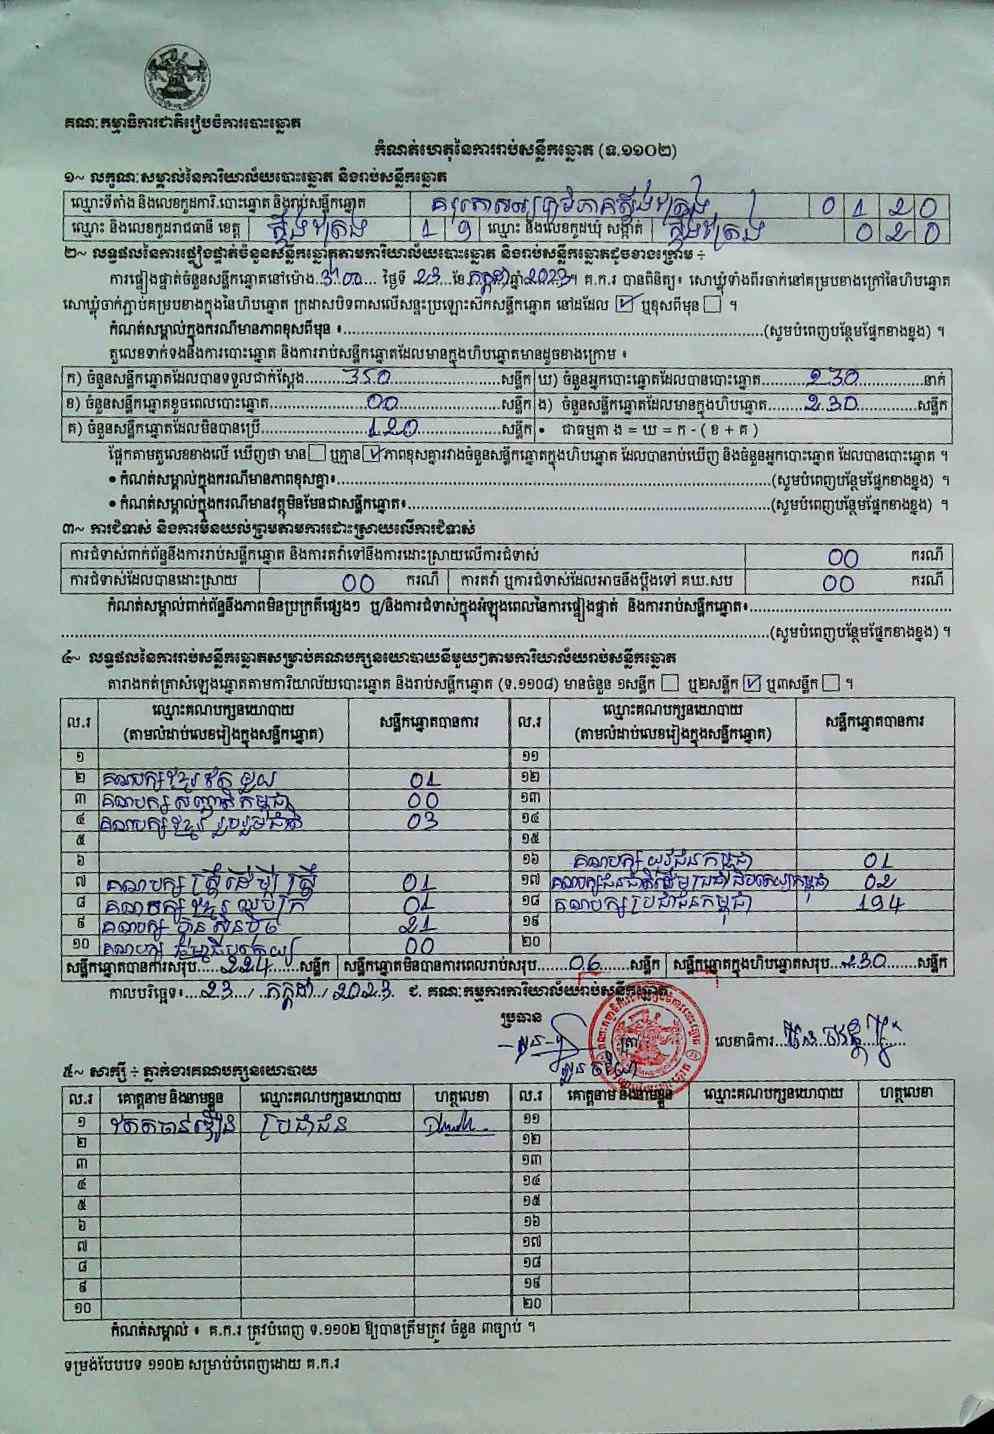 គណៈកម្មាធិការជាតិរៀបចំការបោះឆ្នោត
កំណត់ហេតុនៃការរាប់សន្លឹកឆ្នោត (ទ.១១០២)
១~ លក្ខណៈសម្គាល់នៃការិយាល័យបោះឆ្នោត និងរាប់សន្លឹកឆ្នោត
ឈ្មោះទីតាំង និងលេខកូដការិ.បោះឆ្នោត និងរាប់សន្លឹកឆ្នោត 0 1 2 0
ឈ្មោះ និងលេខកូដរាជធានី ខេត្ត ស្ទឹងត្រែង 1 9 ឈ្មោះ និងលេខកូដឃុំ សង្កាត់ ស្ទឹងត្រែង 0 2 0
២~ លទ្ធផលនៃការផ្ទៀងផ្ទាត់ចំនួនសន្លឹកឆ្នោតតាមការិយាល័យបោះឆ្នោត និងរាប់សន្លឹកឆ្នោតដូចខាងក្រោម ÷
ការផ្ទៀងផ្ទាត់ចំនួនសន្លឹកឆ្នោតនៅម៉ោង 3:00 ថ្ងៃទី 23 ខែ កក្កដា ឆ្នាំ 2023។ គ.ក.រ បានពិនិត្យ៖ សោឃ្លុំទាំងពីរចាក់នៅគម្របខាងក្រៅនៃហិបឆ្នោត
សោឃ្លុំចាក់ភ្ជាប់គម្របខាងក្នុងនៃហិបឆ្នោត ក្រដាសបិទពាសលើសន្ទះប្រឡោះស៊កសន្លឹកឆ្នោត នៅដដែល ☑ ឬខុសពីមុន ☐ ។
កំណត់សម្គាល់ក្នុងករណីមានភាពខុសពីមុន ៖ (សូមបំពេញបន្ថែមផ្នែកខាងខ្នង) ។
តួលេខទាក់ទងនឹងការបោះឆ្នោត និងការរាប់សន្លឹកឆ្នោតដែលមានក្នុងហិបឆ្នោតមានដូចខាងក្រោម ៖
ក) ចំនួនសន្លឹកឆ្នោតដែលបានទទួលជាក់ស្តែង 350 សន្លឹក ឃ) ចំនួនអ្នកបោះឆ្នោតដែលបានបោះឆ្នោត 230 នាក់
ខ) ចំនួនសន្លឹកឆ្នោតខូចពេលបោះឆ្នោត 00 សន្លឹក ង) ចំនួនសន្លឹកឆ្នោតដែលមានក្នុងហិបឆ្នោត 230 សន្លឹក
គ) ចំនួនសន្លឹកឆ្នោតដែលមិនបានប្រើ 120 សន្លឹក • ជាធម្មតា ង = ឃ = ក - ( ខ + គ )
ផ្អែកតាមតួលេខខាងលើ ឃើញថា មាន ☐ ឬគ្មាន ☑ ភាពខុសគ្នារវាងចំនួនសន្លឹកឆ្នោតក្នុងហិបឆ្នោត ដែលបានរាប់ឃើញ និងចំនួនអ្នកបោះឆ្នោត ដែលបានបោះឆ្នោត ។
• កំណត់សម្គាល់ក្នុងករណីមានភាពខុសគ្នា៖ (សូមបំពេញបន្ថែមផ្នែកខាងខ្នង) ។
• កំណត់សម្គាល់ក្នុងករណីមានវត្ថុមិនមែនជាសន្លឹកឆ្នោត៖ (សូមបំពេញបន្ថែមផ្នែកខាងខ្នង) ។
៣~ ការជំទាស់ និងការមិនយល់ព្រមតាមការដោះស្រាយលើការជំទាស់
ការជំទាស់ពាក់ព័ន្ធនឹងការរាប់សន្លឹកឆ្នោត និងការតវ៉ាទៅនឹងការដោះស្រាយលើការជំទាស់ 00 ករណី
ការជំទាស់ដែលបានដោះស្រាយ 00 ករណី ការតវ៉ា ឬការជំទាស់ដែលអាចនឹងប្តឹងទៅ គឃ.សប 00 ករណី
កំណត់សម្គាល់ពាក់ព័ន្ធនឹងភាពមិនប្រក្រតីផ្សេងៗ ឬ/និងការជំទាស់ក្នុងអំឡុងពេលនៃការផ្ទៀងផ្ទាត់ និងការរាប់សន្លឹកឆ្នោត៖
(សូមបំពេញបន្ថែមផ្នែកខាងខ្នង) ។
៤~ លទ្ធផលនៃការរាប់សន្លឹកឆ្នោតសម្រាប់គណបក្សនយោបាយនីមួយៗតាមការិយាល័យរាប់សន្លឹកឆ្នោត
តារាងកត់ត្រាសំឡេងឆ្នោតតាមការិយាល័យបោះឆ្នោត និងរាប់សន្លឹកឆ្នោត (ទ.១១០៨) មានចំនួន ១សន្លឹក ☐ ឬ២សន្លឹក ☑ ឬ៣សន្លឹក ☐ ។
ល.រ ឈ្មោះគណបក្សនយោបាយ (តាមលំដាប់លេខរៀងក្នុងសន្លឹកឆ្នោត) សន្លឹកឆ្នោតបានការ ល.រ ឈ្មោះគណបក្សនយោបាយ (តាមលំដាប់លេខរៀងក្នុងសន្លឹកឆ្នោត) សន្លឹកឆ្នោតបានការ
១ ១១
២ គណបក្ស ខ្មែរតែមួយ 01 ១២
៣ គណបក្ស សញ្ជាតិកម្ពុជា 00 ១៣
៤ គណបក្ស ខ្មែរ រួបរួមជាតិ 03 ១៤
៥ ១៥
៦ ១៦ គណបក្ស យុវជនកម្ពុជា 01
៧ គណបក្ស ស្ត្រីដើម្បីស្ត្រី 01 ១៧ គណបក្សជនជាតិដើមប្រជាធិបតេយ្យកម្ពុជា 02
៨ គណបក្ស ខ្មែរ ឈប់ក្រ 01 ១៨ គណបក្ស ប្រជាជនកម្ពុជា 194
៩ គណបក្ស ហ្វ៊ុនស៊ិនប៉ិច 21 ១៩
១០ គណបក្ស ធម្មាធិបតេយ្យ 00 ២០
សន្លឹកឆ្នោតបានការសរុប 224 សន្លឹក សន្លឹកឆ្នោតមិនបានការពេលរាប់សរុប 06 សន្លឹក សន្លឹកឆ្នោតក្នុងហិបឆ្នោតសរុប 230 សន្លឹក
កាលបរិច្ឆេទ៖ 23 / កក្កដា / 2023 ជ. គណៈកម្មការការិយាល័យរាប់សន្លឹកឆ្នោត
ប្រធាន ត្រា លេខាធិការ
៥~ សាក្សី ÷ ភ្នាក់ងារគណបក្សនយោបាយ
ល.រ គោត្តនាម និងនាមខ្លួន ឈ្មោះគណបក្សនយោបាយ ហត្ថលេខា ល.រ គោត្តនាម និងនាមខ្លួន ឈ្មោះគណបក្សនយោបាយ ហត្ថលេខា
១ ប្រជាជន ១១
២ ១២
៣ ១៣
៤ ១៤
៥ ១៥
៦ ១៦
៧ ១៧
៨ ១៨
៩ ១៩
១០ ២០
កំណត់សម្គាល់ ៖ គ.ក.រ ត្រូវបំពេញ ទ.១១០២ ឱ្យបានត្រឹមត្រូវ ចំនួន ៣ច្បាប់ ។
ទម្រង់បែបបទ ១១០២ សម្រាប់បំពេញដោយ គ.ក.រ